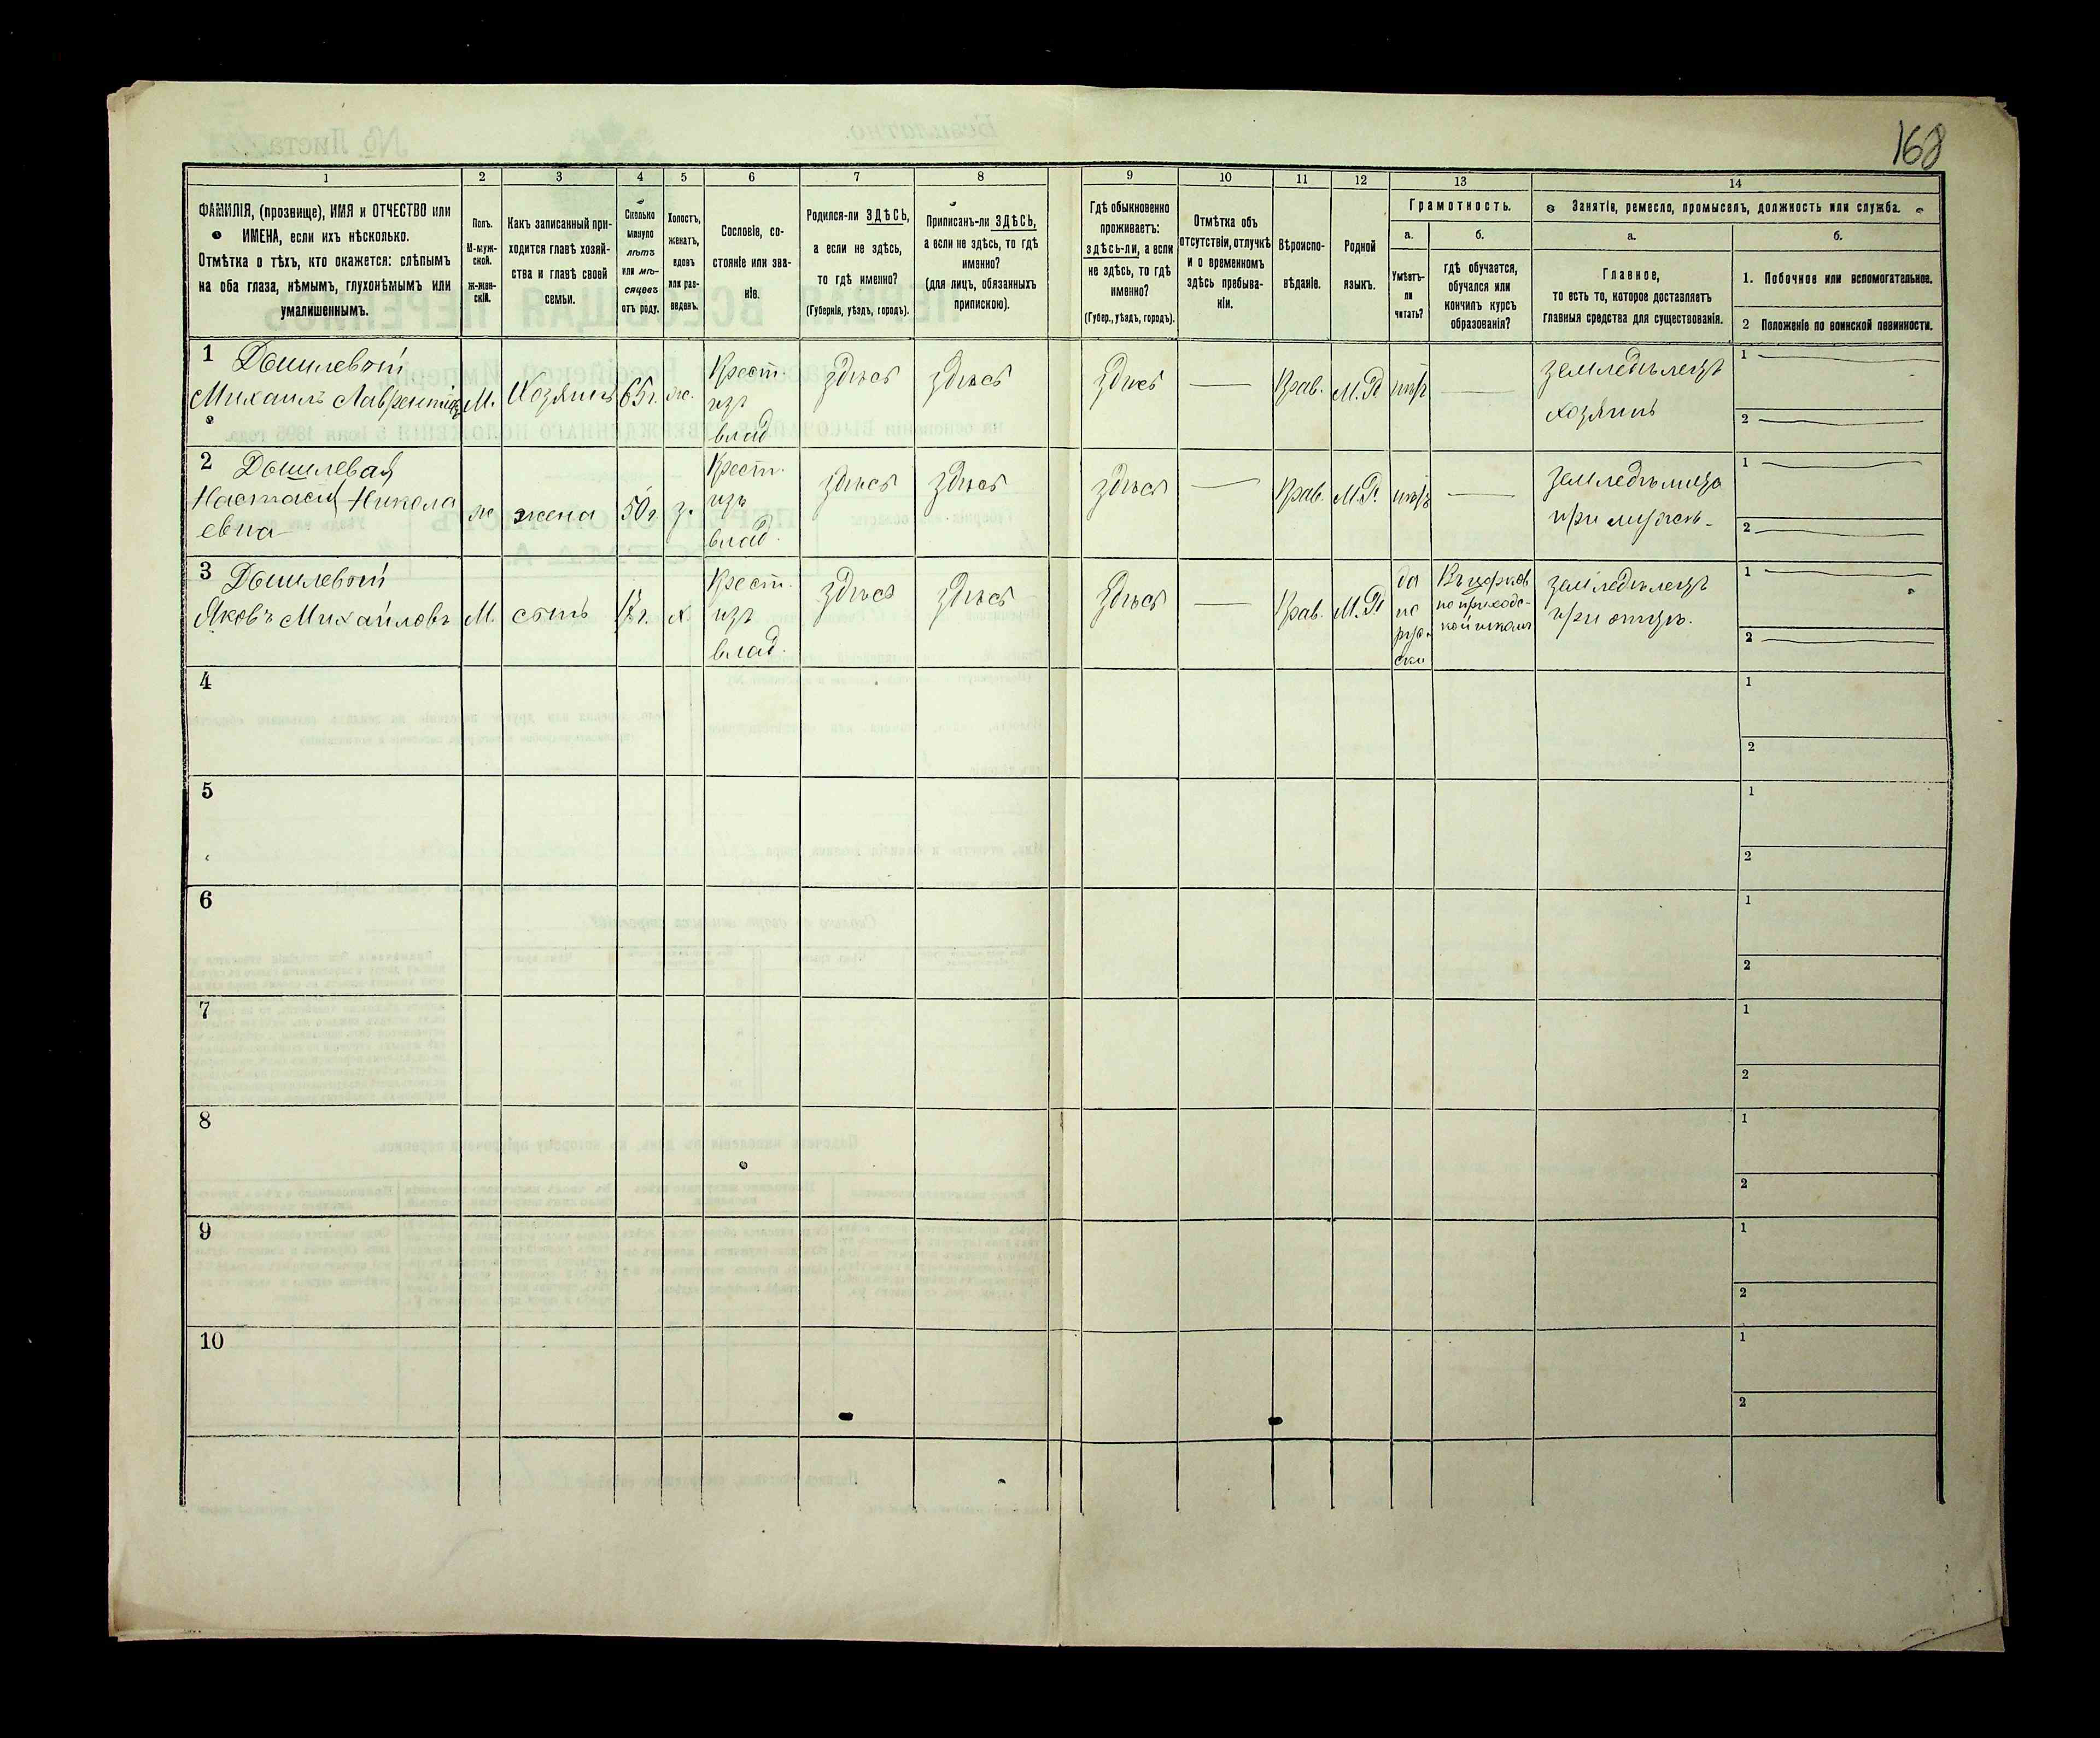 168
1 2 3 4 5 6 7 8 9 10 11 12 13 14
ФАМИЛІЯ, (прозвище), ИМЯ и ОТЧЕСТВО или
ИМЕНА, если ихъ нѣсколько.
Отмѣтка о тѣхъ, кто окажется: слѣпымъ
на оба глаза, нѣмымъ, глухонѣмымъ или
умалишеннымъ.
Полъ.
М-муж-
ской.
ж-жен-
скій.
Какъ записанный при-
ходится главѣ хозяй-
ства и главѣ своей
семьи.
Сколько
минуло
лѣтъ
или мѣ-
сяцевъ
отъ роду.
Холостъ,
женатъ,
вдовъ
или раз-
веденъ.
Сословіе, со-
стояніе или зва-
ніе.
Родился-ли ЗДѢСЬ,
а если не здѣсь,
то гдѣ именно?
(Губернія, уѣздъ, городъ).
Приписанъ-ли ЗДѢСЬ,
а если не здѣсь, то гдѣ
именно?
(для лицъ, обязанныхъ
припискою).
Гдѣ обыкновенно
проживаетъ:
здѣсь-ли, а если
не здѣсь, то гдѣ
именно?
(Губер., уѣздъ, городъ).
Отмѣтка объ
отсутствіи, отлучкѣ
и о временномъ
здѣсь пребыва-
ніи.
Вѣроиспо-
вѣданіе.
Родной
языкъ.
Грамотность.
а.
Умѣетъ-
ли
читать?
б.
гдѣ обучается,
обучался или
кончилъ курсъ
образованія?
Занятіе, ремесло, промыселъ, должность или служба.
а.
Главное,
то есть то, которое доставляетъ
главныя средства для существованія.
б.
1. Побочное или вспомогательное.
2 Положеніе по воинской повинности.
1 Дышлевой
Михаилъ Лаврентіевъ
М.
Хозяинъ
65 г.
ж.
Крест.
изъ
влад.
здѣсь
здѣсь
здѣсь
Прав.
М.Р.
нѣтъ
земледѣлецъ
хозяинъ
1
2
2 Дышлевая
Настасія Никола
евна
ж
жена
50 г.
з.
Крест.
изъ
влад.
здѣсь
здѣсь
здѣсь
Прав.
М.Р.
нѣтъ
земледѣлица
при мужѣ.
1
2
3 Дышлевой
Яковъ Михайловъ
М.
сынъ
г.
х.
Крест.
изъ
влад.
здѣсь
здѣсь
здѣсь
Прав.
М.Р.
да
по
рус-
ски
Въ церков
но приходс-
кой школѣ
земледѣлецъ
при отцѣ.
1
2
4
1
2
5
1
2
6
1
2
7
1
2
8
1
2
9
1
2
10
1
2